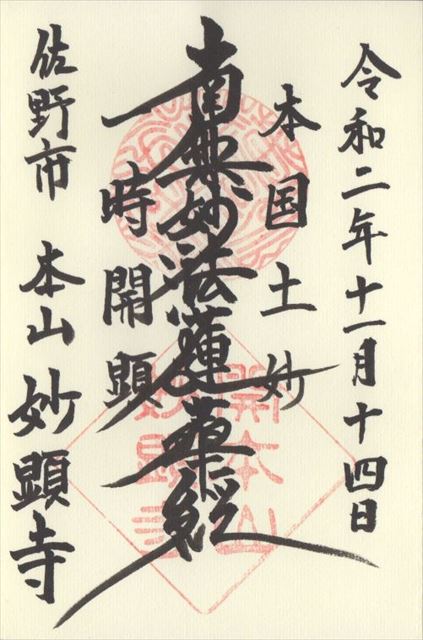 令和二年十一月十四日
本国土妙
南無妙法蓮華経
時開顕
佐野市 本山 妙顕寺
開本山
妙顕寺